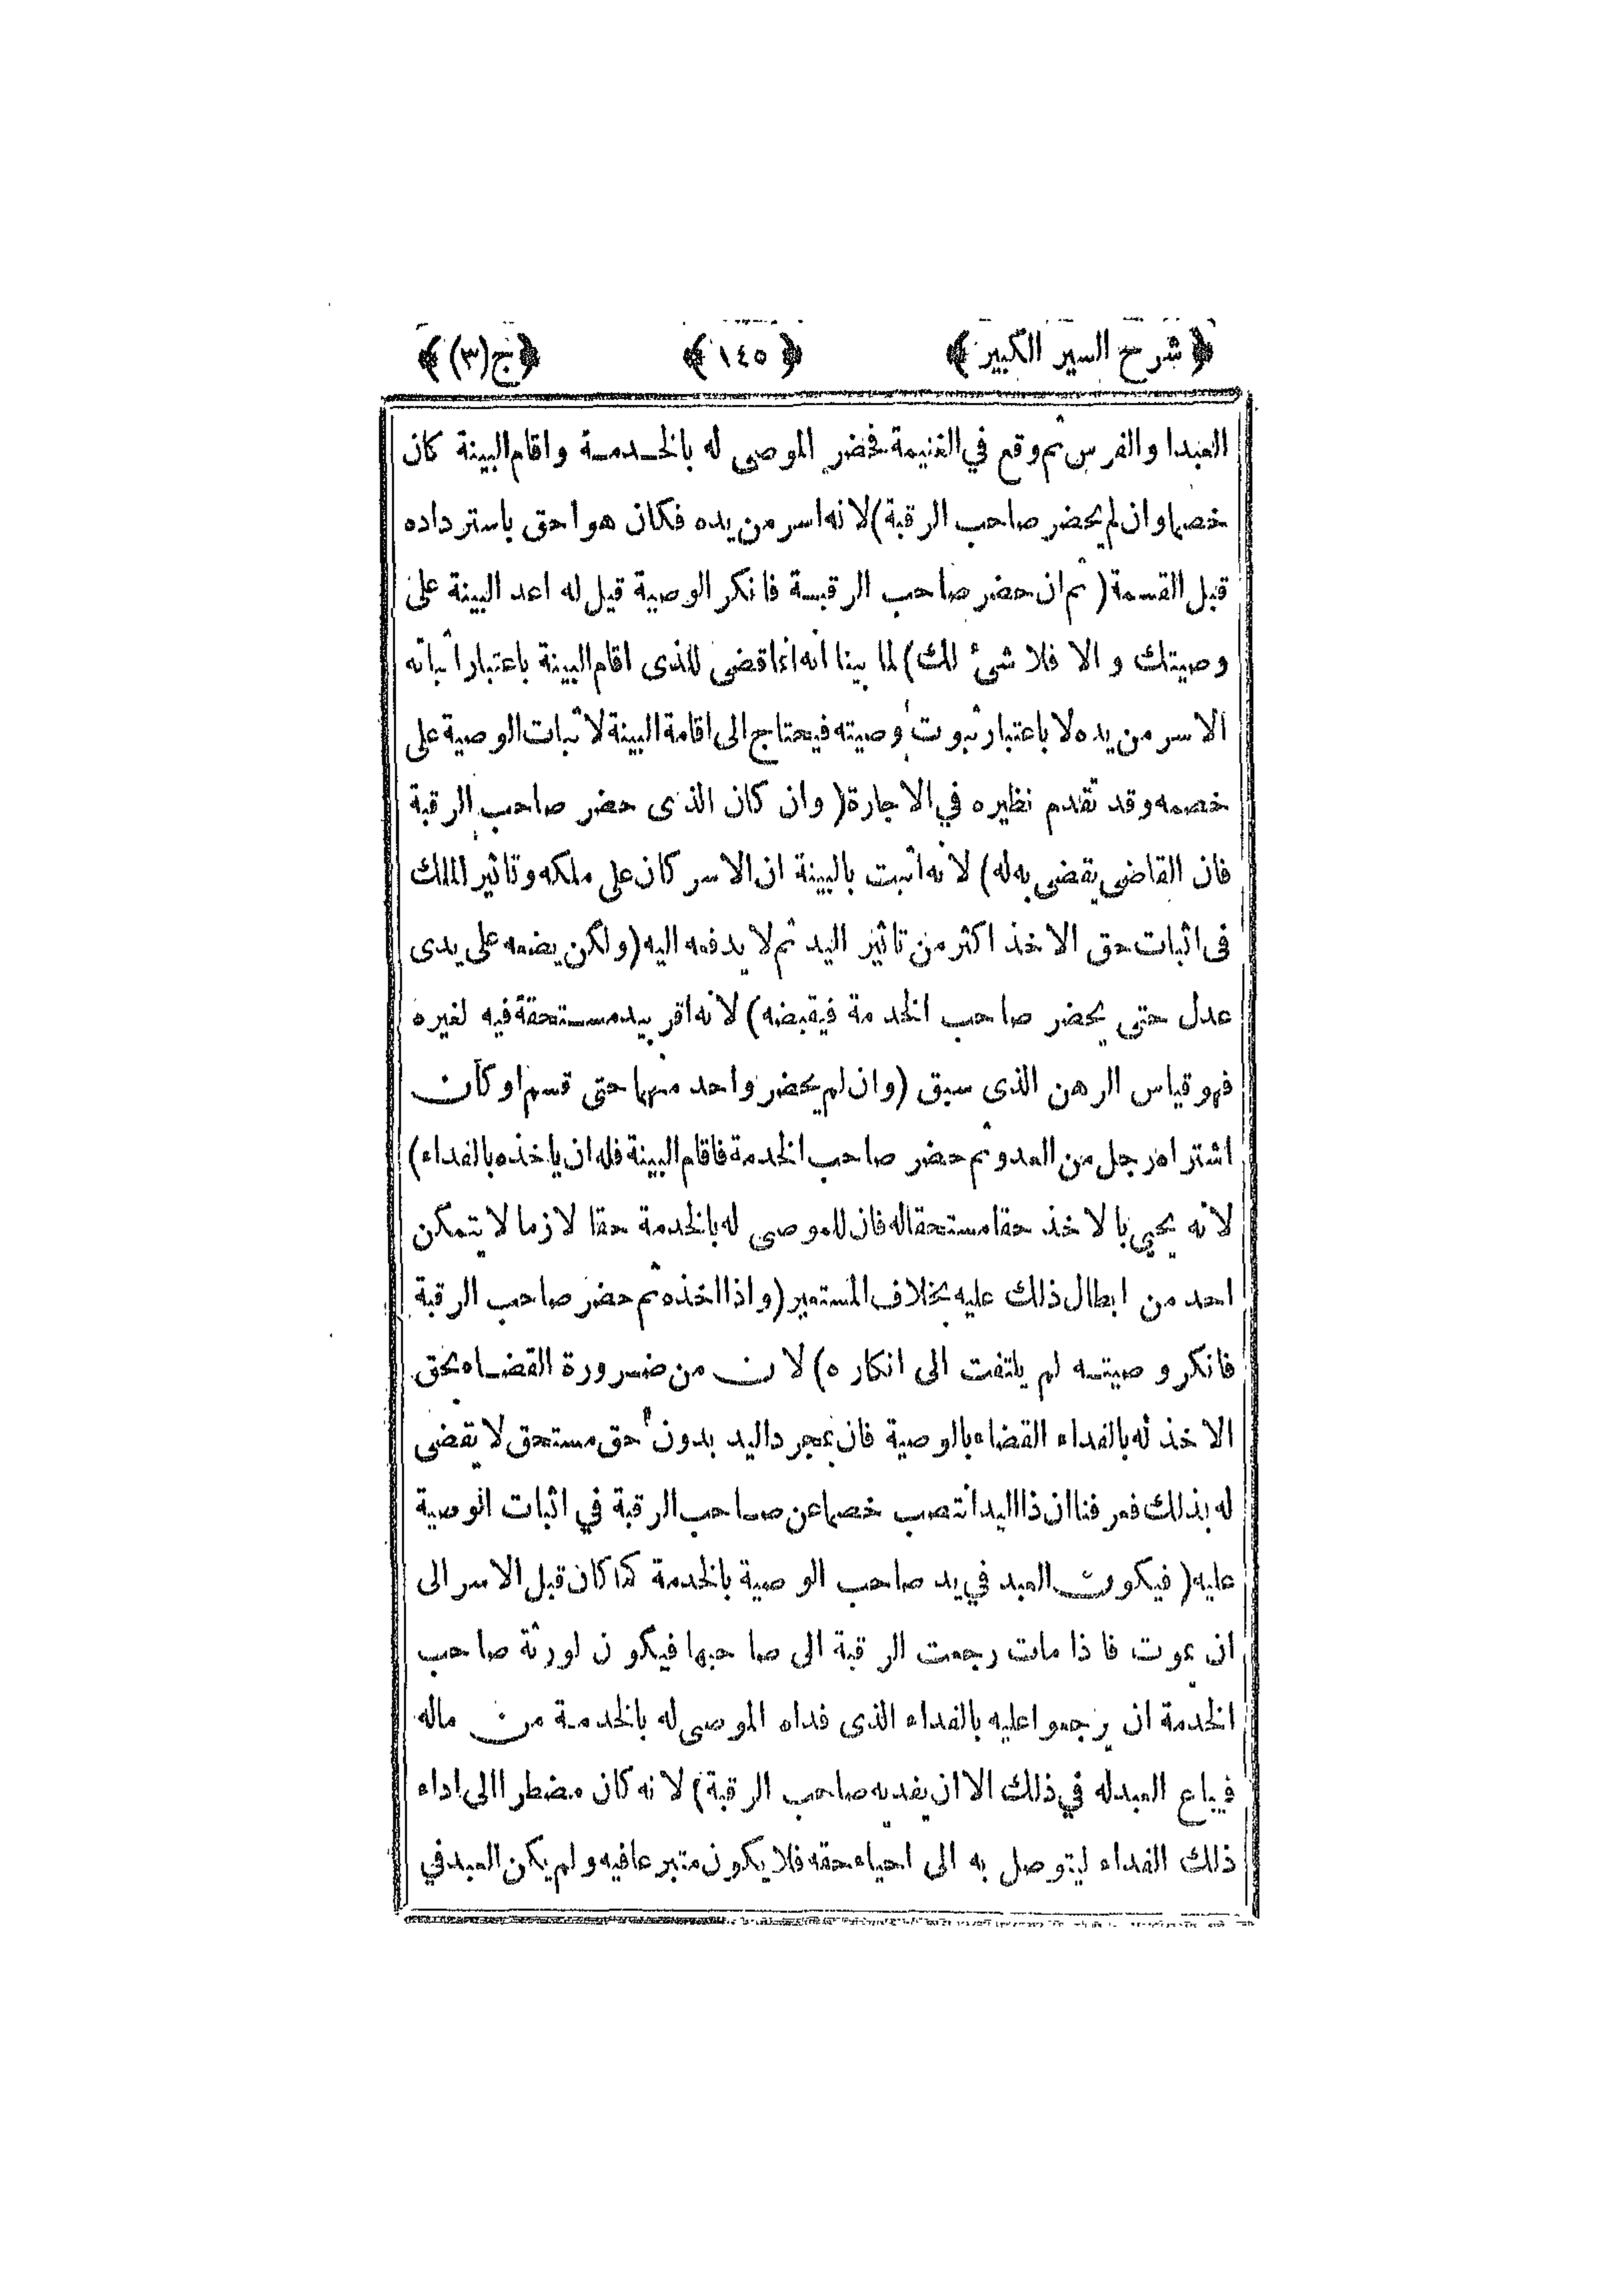 ﴿شرح السير الكبير﴾ ﴿١٤٥﴾ ﴿ج(٣)﴾
العبد او الفرس ثم وقع في الغنيمة فحضر الموصى له بالخدمة واقام البينة كان
خصما وان لم يحضر صاحب الرقبة) لانه اسر من يده فكان هو احق باسترداده
قبل القسمة (ثم ان حضر صاحب الرقبة فانكر الوصية قيل له اعد البينة على
وصيتك والا فلا شئ لك) لما بينا انه انما قضى للذى اقام البينة باعتبار اثباته
الاسر من يده لا باعتبار ثبوت وصيته فيحتاج الى اقامة البينة لاثبات الوصية على
خصمه وقد تقدم نظيره في الاجارة (وان كان الذى حضر صاحب الرقبة
فان القاضى يقضى به له) لانه اثبت بالبينة ان الاسر كان على ملكه وتاثير الملك
فى اثبات حق الاخذ اكثر من تاثير اليد ثم لا يدفعه اليه (ولكن يضعه على يدى
عدل حتى يحضر صاحب الخدمة فيقبضه) لانه اقر بيد مستحقة فيه لغيره
فهو قياس الرهن الذى سبق (وان لم يحضر واحد منهما حتى قسم او كان
اشتراه رجل من العدو ثم حضر صاحب الخدمة فاقام البينة فله ان ياخذه بالفداء)
لانه يحيى بالاخذ حقا مستحقا له فان للموصى له بالخدمة حقا لازما لا يتمكن
احد من ابطال ذلك عليه بخلاف المستعير (واذا اخذه ثم حضر صاحب الرقبة
فانكر وصيته لم يلتفت الى انكاره) لان من ضرورة القضاء بحق
الاخذ له بالفداء القضاء بالوصية فان بمجرد اليد بدون حق مستحق لا يقضى
له بذلك فعرفنا ان ذا اليد انتصب خصما عن صاحب الرقبة في اثبات الوصية
عليه (فيكون العبد في يد صاحب الوصية بالخدمة كما كان قبل الاسر الى
ان يموت فاذا مات رجعت الرقبة الى صاحبها فيكون لورثة صاحب
الخدمة ان يرجعوا عليه بالفداء الذى فداه الموصى له بالخدمة من ماله
فيباع العبد له في ذلك الا ان يفديه صاحب الرقبة) لانه كان مضطرا الى اداء
ذلك الفداء ليتوصل به الى احياء حقه فلا يكون متبرعا فيه ولم يكن العبد في